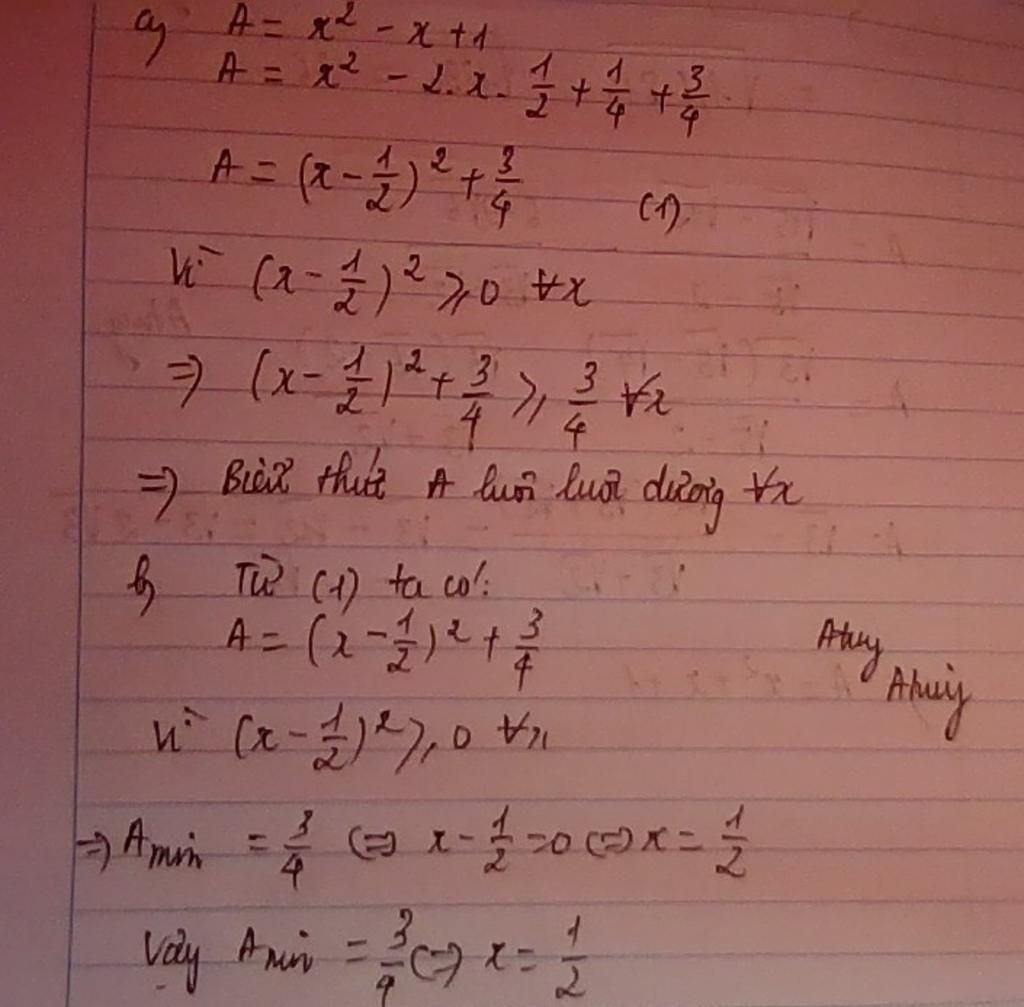 a) A = x² - x + 1
A = x² - 2.x.1/2 + 1/4 + 3/4
A = (x - 1/2)² + 3/4 (1)
Vì (x - 1/2)² ≥ 0 ∀x
⇒ (x - 1/2)² + 3/4 ≥ 3/4 ∀x
⇒ Biểu thức A luôn luôn dương ∀x
b) Từ (1) ta có:
A = (x - 1/2)² + 3/4
Vì (x - 1/2)² ≥ 0 ∀x
⇒ A min = 3/4 ⇔ x - 1/2 = 0 ⇔ x = 1/2
Vậy A min = 3/4 ⇔ x = 1/2